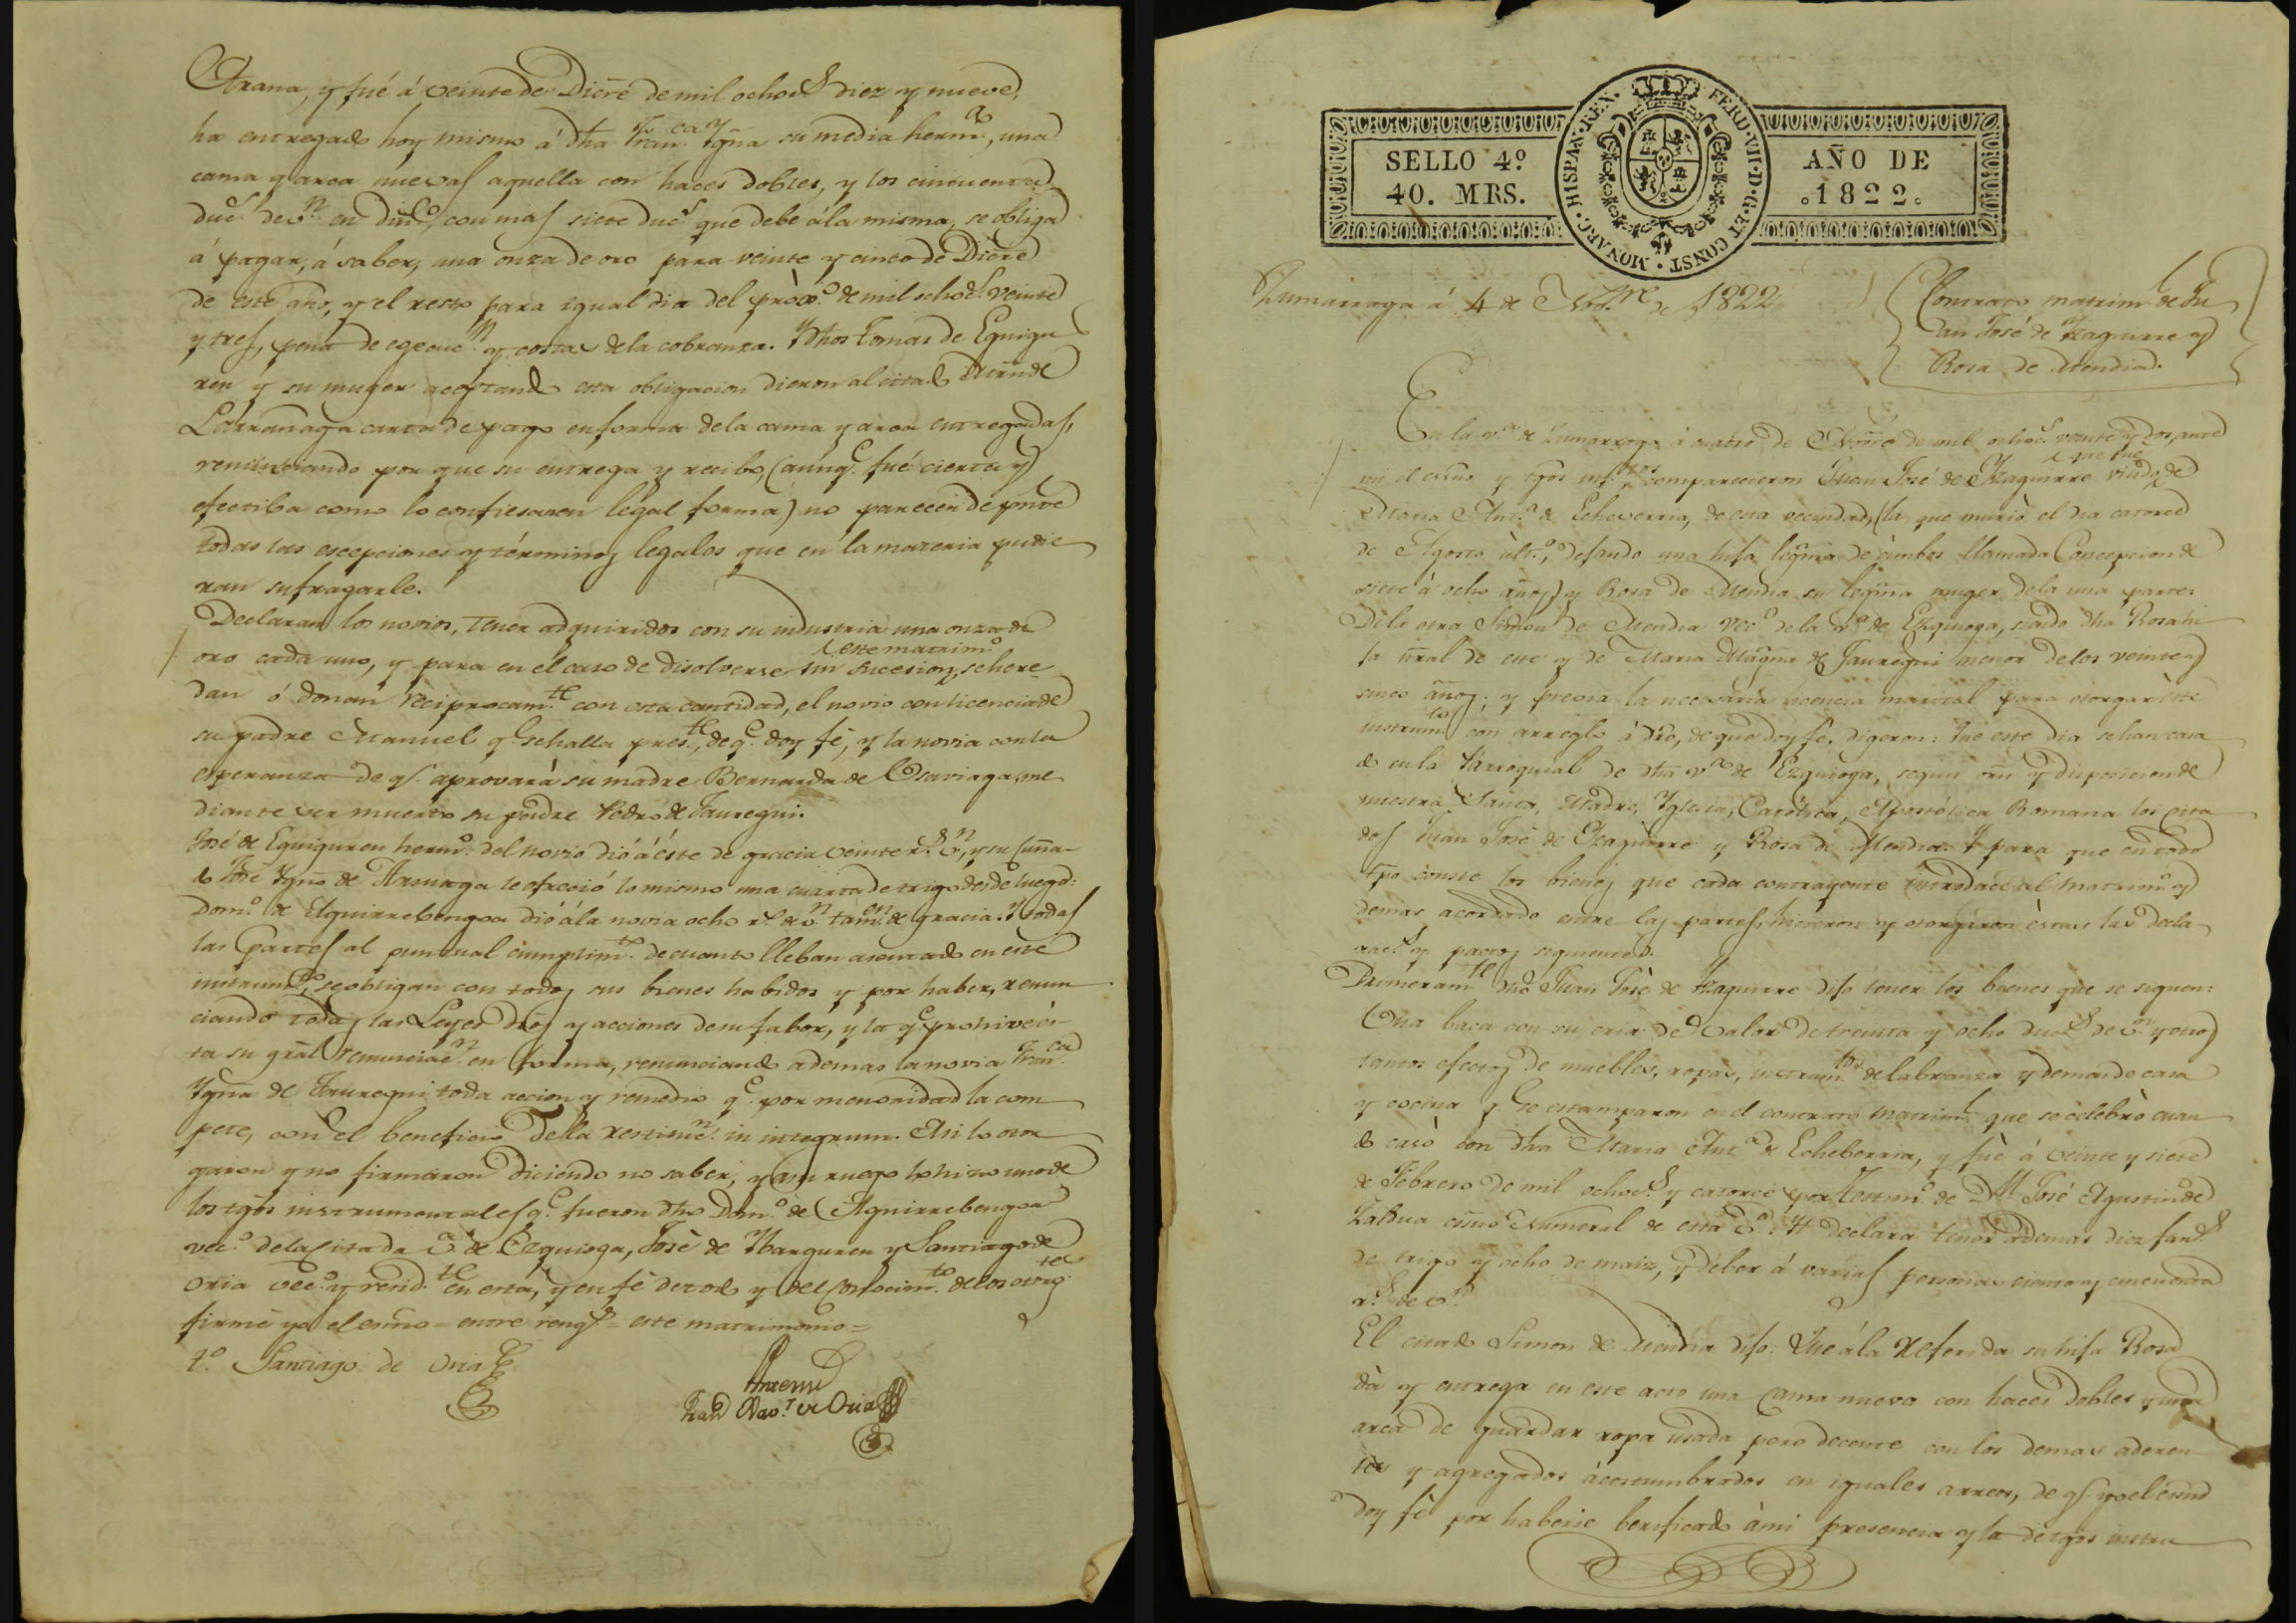 Arana, y fué á veinte de Dicre de mil ochocs diez y nueve,
ha entregado hoy mismo á dha Franca Ygna su media hermna, una
cama y arca nuevas aquella con haces dobles, y los cincuenta
ducs de vn en dino, con mas siete ducs que debe á la misma, se obliga
á pagar, á saber, una onza de oro para veinte y cinco de Dicre
de este año, y el resto para igual dia del pròxo de mil ochocs veinte
y tres, pena de egecucn y costas de la cobranza. Y dhos Tomas de Eguigu
ren y su muger aceptando esta obligacion dieron al citado
Larrañaga carta de pago en forma de la cama y arca entregadas,
renunciando por que su entrega y recibo (aunqe fué cierta y
efectiba como lo confiesan en legal forma) no parecen de pnte
todas las escepciones y términos legales que en la materia pudie
ran sufragarle.
Declaran los novios, tener adquiridos con su industria una onza de
este matrimo
oro cada uno, y para en el caso de disolverse sin sucesion, se here
dan ó donan reciprocamte con esta cantidad, el novio con licencia de
su padre Manuel qe se halla preste, de qe doy fé, y la novia con la
esperanza de qe aprovará su madre Bernarda de Usaviaga, me
diante ser muerto su padre Pedro de Jauregui.
José de Eguiguren hermo del novio dió á éste de gracia veinte rs vn, y su cuña
do José Ygno de Arsuaga le ofreció lo mismo una cuarta de trigo desde luego:
Domo de Elguirrebengoa dió á la novia ocho rs de vn tamn de gracia. Y todas
las partes al puntual cumplimto de cuanto lleban asentado en este
instrumto, se obligan con todos sus bienes habidos y por haber, renun
ciando todas las Leyes dros y acciones de su fabor, y la qe prohive és
ta su gral renunciacn en forma, renunciando ademas la novia Franca
Ygna de Jauregui toda accion y remedio qe por menoridad la com
pete, con el beneficio de la restitucn in integrum. Asi lo otor
garon y no firmaron diciendo no saber, y a su ruego lo hizo uno de
los tgos instrumentales qe fueron dho Domo de Aguirrebengoa
veco de la citada va de Ezquioga, José de Ybarguren y Santiago de
Oria veco y residte en esta, y en fé de todo y del conocimto de los otorgtes
firmé yo el esno = entre rengs = este matrimonio =
to Santiago de Oria
Ante mi
Franco Xavr de Oria
MONARC · HISPAN · REX · FERD · VII · D · G · ET CONST
SELLO 4º
40. MRS.
AÑO DE
1822
Zumarraga á 4 de Nobre de 1822
Contrato matriml de Ju
an José de Yzaguirre y
Rosa de Mendia.
En la va de Zumarraga á cuatro de Nobre de mil ochocs veinte y dos, ante
que fue
mi el esno y tgos infrtos comparecieron Juan José de Yzaguirre viudo de
Maria Anta de Echeverria, de esta vecindad, (la que murió el dia catorce
de Agosto ùlto, dejando una hija legma de àmbos llamada Concepcion de
siete à ocho años) y Rosa de Mendia su legma muger de la una parte:
De la otra Simon de Mendia veco de la va de Ezquioga, siendo dha Rosa hi
ja nral de este y de Maria Magna de Jauregui menor de los veinte y
cinco años; y previa la necesaria licencia marital para otorgar este
instrumto con arreglo á dro, de que doy fe, digeron: Que este dia se han casa
do en la Parroquial de dha va de Ezquioga, segun orn y disposicion de
nuestra Santa, Madre, Yglesia, Católica, Apostólica Romana los cita
dos Juan José de Yzaguirre y Rosa de Mendia. Y para que en todo
tpo conste los bienes que cada contrayente introduce al matrimo y
demas acordado entre las partes, hicieron y otorgaron èstas las decla
racs y pactos siguientes.
Primeramte dho Juan José de Yzaguirre dijo tener los bienes que se siguen:
Una baca con su cria de valor de treinta y ocho ducs de vn y otros
tantos efectos de muebles, ropas, instrumtos de labranza y demas de casa
y cocina qe se estamparon en el contrato matriml que se celebrò cuan
do casò con dha Maria Anta de Echeberria, y fuè á veinte y siete
de Febrero de mil ochocs y catorce por testimo de Dn José Agustin de
Zaldua esno Numeral de esta va. Yt declara tener ademas diez fans
de trigo y ocho de maiz, y deber á varias personas ciento y cincuenta
rs de vn
El citado Simon de Mendia dijo: Que á la referida su hija Rosa
dà y entrega en este acto una cama nueva con haces dobles y una
arca de guardar ropa usada pero decente con los demas aderen
tes y agregados àcostumbrados en iguales arreos, de qe yo el esno
doy fè por haberse berificado à mi presencia y la de tgos instru